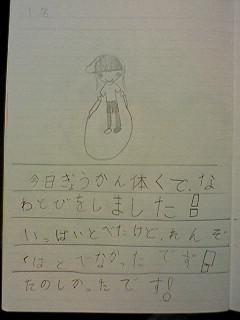 今日ぎょうかん体くで、な
わとびをしました!!
いっぱいとべたけど、れんぞ
くはとべなかったです!!
たのしかったです!